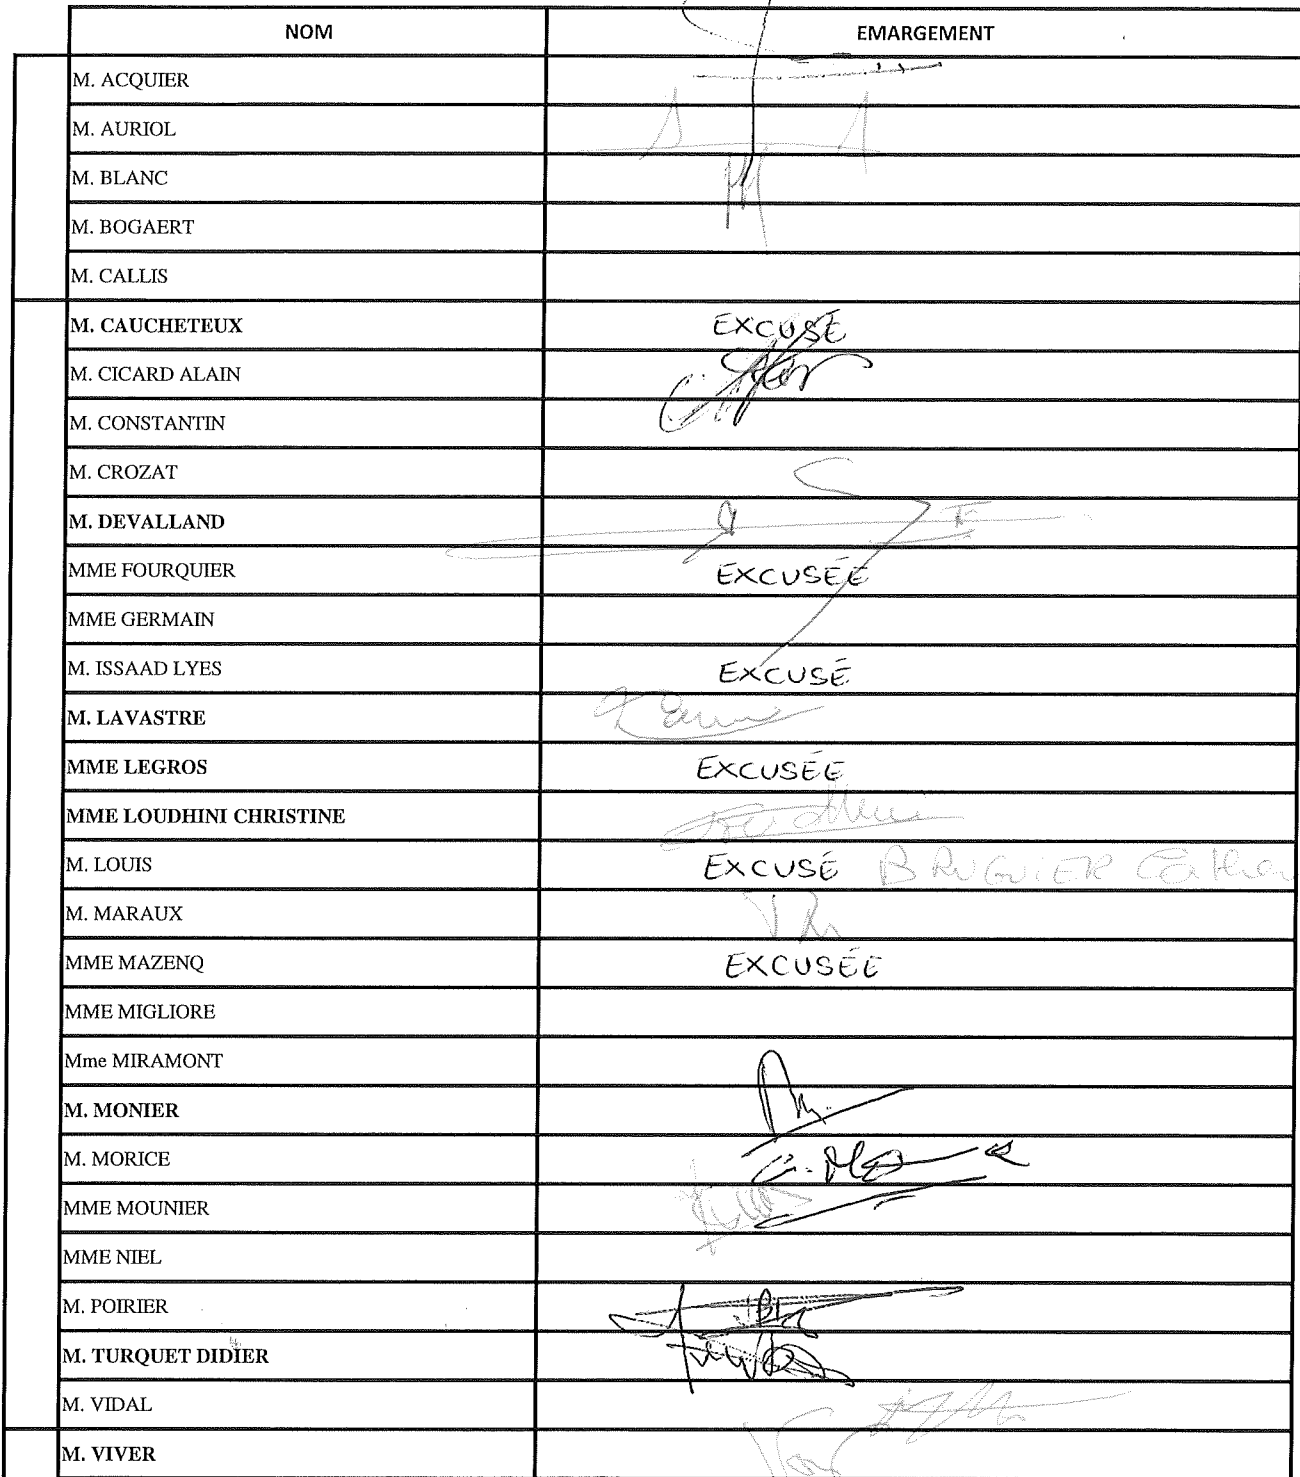 NOM EMARGEMENT
M. ACQUIER
M. AURIOL
M. BLANC
M. BOGAERT
M. CALLIS
M. CAUCHETEUX EXCUSÉ
M. CICARD ALAIN
M. CONSTANTIN
M. CROZAT
M. DEVALLAND
MME FOURQUIER EXCUSÉE
MME GERMAIN
M. ISSAAD LYES EXCUSÉ
M. LAVASTRE
MME LEGROS EXCUSÉE
MME LOUDHINI CHRISTINE
M. LOUIS EXCUSÉ BRUGUIER
M. MARAUX
MME MAZENQ EXCUSÉE
MME MIGLIORE
Mme MIRAMONT
M. MONIER
M. MORICE
MME MOUNIER
MME NIEL
M. POIRIER
M. TURQUET DIDIER
M. VIDAL
M. VIVER